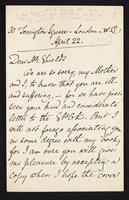 30 Torrington Square – London – W.C.
April 22.
Dear Mr. Shields
We are so sorry, my Mother
and I, to know that you are ill
and suffering, – for we have just
seen your kind and considerate
letter to the S.P.C.K. But I
will not forego associating you
in some degree with my book,
for I am sure you will give
me pleasure by accepting a
copy when I hope the cover